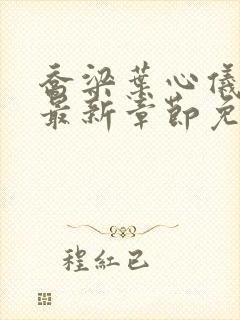 乔梁葉心儀
最新章節免
程紅已